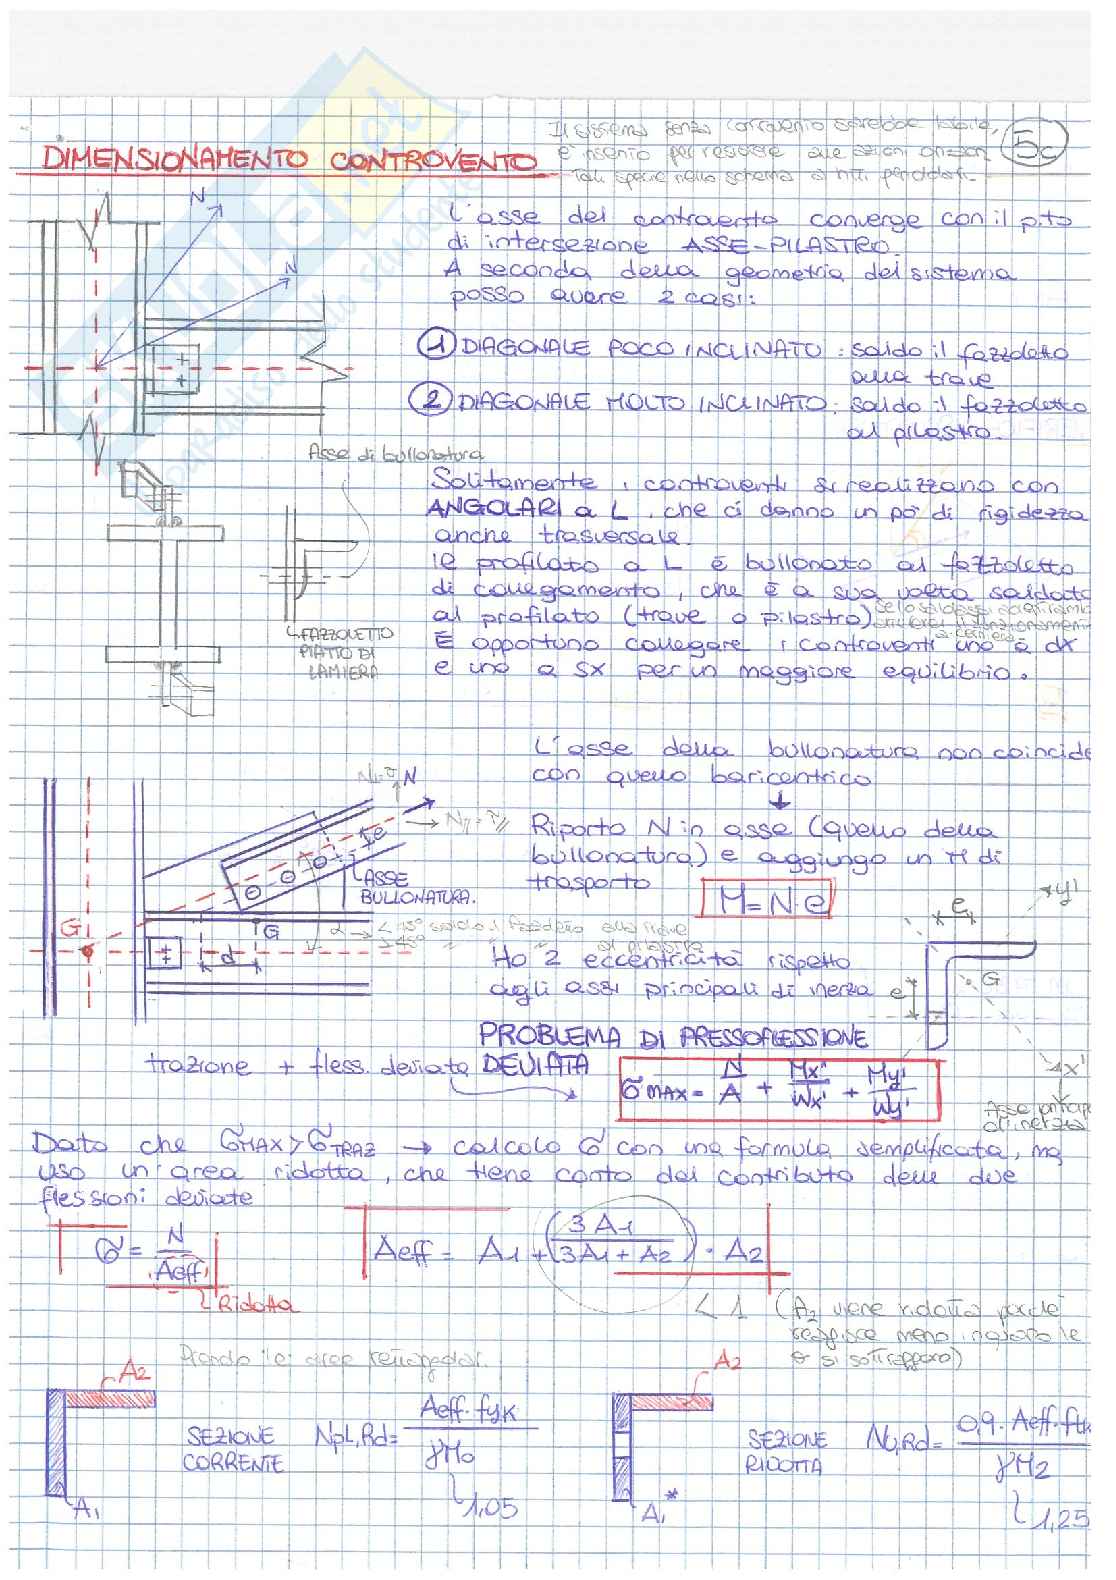 Il sistema senza controvento sarebbe labile,
è inserito per resistere alle azioni orizzon
tali specie nello schema a ritti pendolari.
5c
DIMENSIONAMENTO CONTROVENTO
N
N
L'asse del controvento converge con il p.to
di intersezione ASSE-PILASTRO.
A seconda della geometria del sistema
posso avere 2 casi:
1 DIAGONALE POCO INCLINATO: saldo il fazzoletto
sulla trave
2 DIAGONALE MOLTO INCLINATO: saldo il fazzoletto
al pilastro.
Asse di bullonatura
Solitamente i controventi si realizzano con
ANGOLARI a L, che ci danno un pò di rigidezza
anche trasversale.
Il profilato a L è bullonato al fazzoletto
di collegamento, che è a sua volta saldato
al profilato (trave o pilastro)
È opportuno collegare i controventi uno a dx
e uno a sx per un maggiore equilibrio.
FAZZOLETTO
PIATTO DI
LAMIERA
L'asse della bullonatura non coincide
con quello baricentrico
↓
Riporto N in asse (quello della
bullonatura) e aggiungo un M di
trasporto
M = N·e
N
e
ASSE
BULLONATURA.
G
G
d
α → < 45° saldo il fazzoletto alla trave
≥ 45° " " " al pilastro
Ho 2 eccentricità rispetto
agli assi principali di inerzia
e
y'
G
e'
x'
PROBLEMA DI PRESSOFLESSIONE
trazione + fless. deviata DEVIATA
σMAX = N/A + Mx'/Wx' + My'/Wy'
Dato che σMAX > σTRAZ → calcolo σ con una formula semplificata, ma
uso un'area ridotta, che tiene conto del contributo delle due
flessioni deviate
σ = N/Aeff
Ridotta
Aeff = A1 + (3A1/(3A1 + A2)) · A2
< 1 (A2 viene ridotta perché
reagisce meno in quanto le
σ si sottraggono)
Prendo le aree rettangolari.
A2
A1
SEZIONE
CORRENTE
Npl,Rd = Aeff·fyk/γM0
1,05
A2
A1*
SEZIONE
RIDOTTA
Nu,Rd = 0,9·Aeff·ftk/γM2
1,25